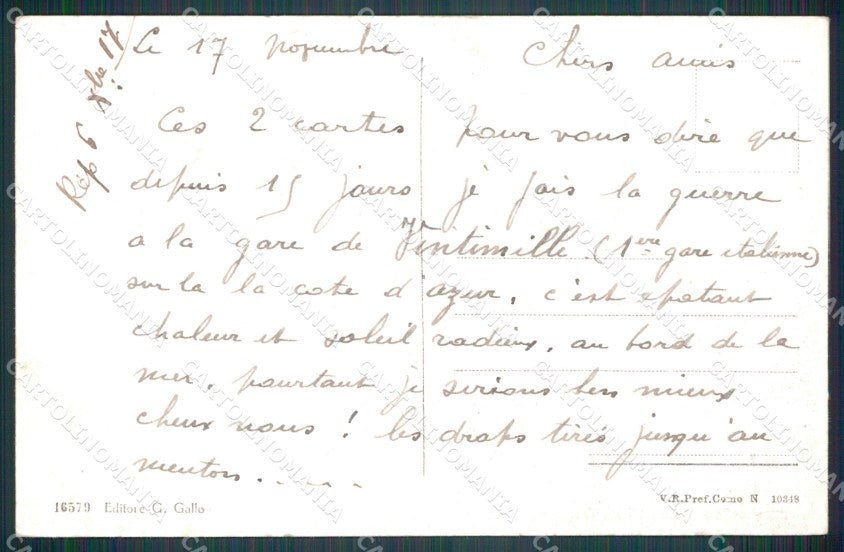 Rép 6 Xbre 17
Le 17 novembre
Chers amis
Ces 2 cartes pour vous dire que
depuis 15 jours je fais la guerre
a la gare de Vintimille. (1ère gare italienne)
sur la la cote d'azur, c'est epatant
chaleur et soleil radieux, au bord de la
mer, pourtant je serions ben mieux
cheux nous ! les draps tirés jusqu'au
menton.....
16579 Editore G. Gallo
V.R.Pref.Como N 10348
CARTOLINOMANIA